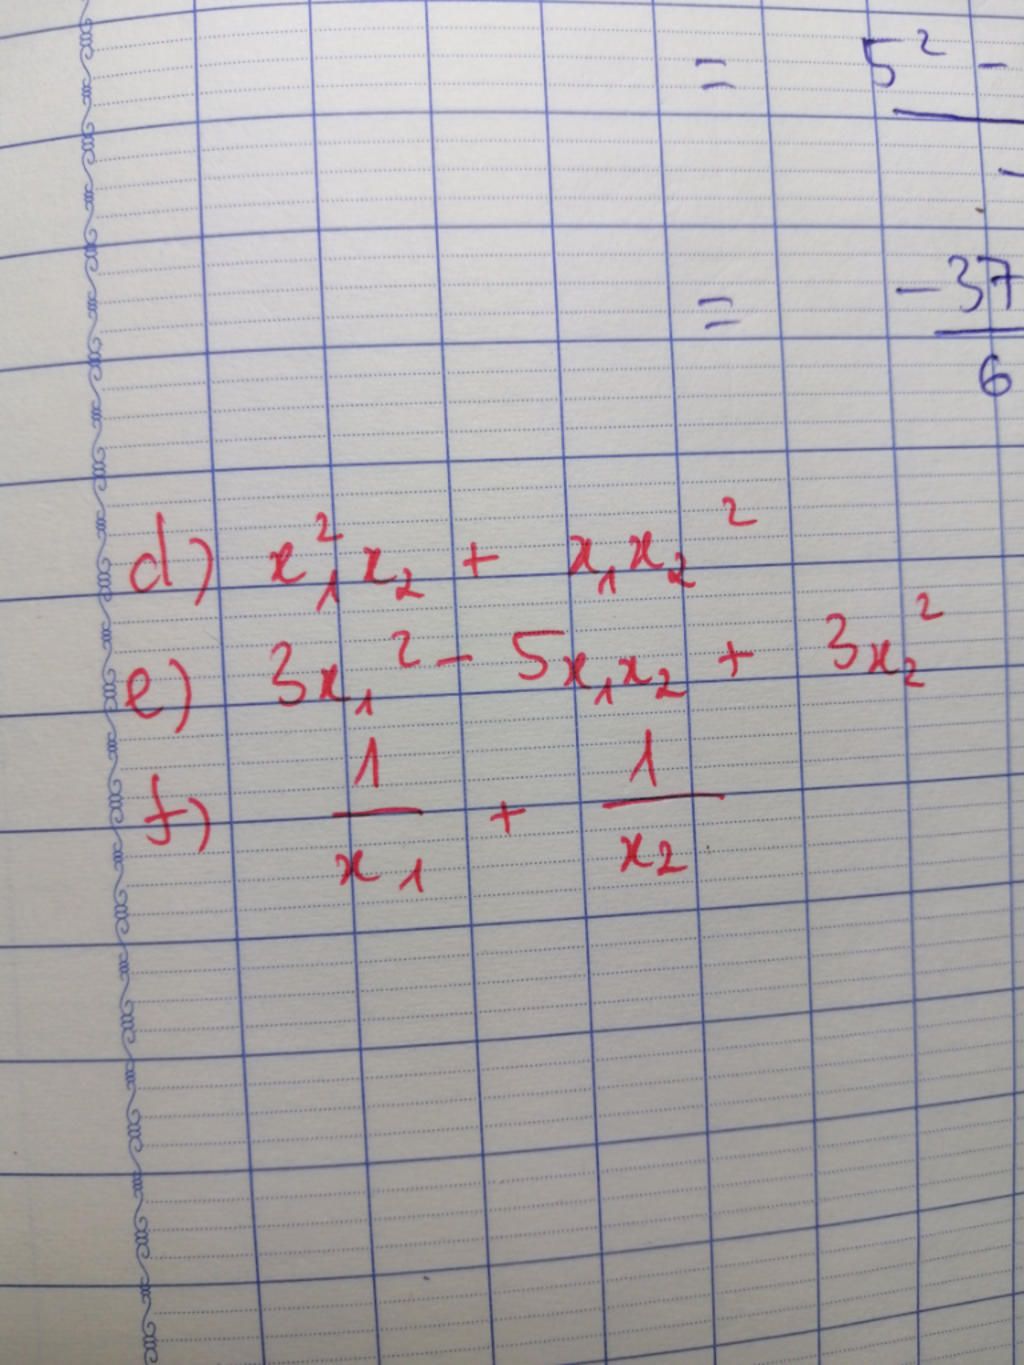 = 5² -
-
= -37
6
d) x₁²x₂ + x₁x₂²
e) 3x₁² - 5x₁x₂ + 3x₂²
f) 1/x₁ + 1/x₂